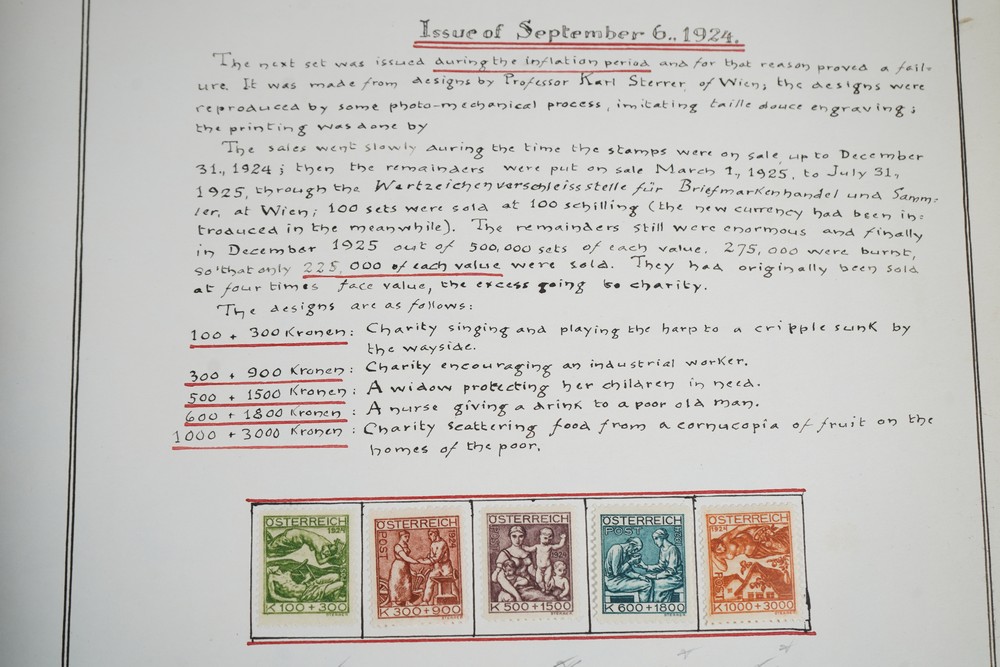 Issue of September 6., 1924.
The next set was issued during the inflation period and for that reason proved a fail-
ure. It was made from designs by Professor Karl Sterrer, of Wien; the designs were
reproduced by some photo-mechanical process, imitating taille douce engraving;
the printing was done by
The sales went slowly during the time the stamps were on sale, up to December
31., 1924; then the remainders were put on sale March 1., 1925, to July 31,
1925, through the Wertzeichenverschleissstelle für Briefmarkenhandel und Samm-
ler, at Wien; 100 sets were sold at 100 schilling (the new currency had been in-
troduced in the meanwhile). The remainders still were enormous and finally
in December 1925 out of 500,000 sets of each value. 275,000 were burnt,
so that only 225,000 of each value were sold. They had originally been sold
at four times face value, the excess going to charity.
The designs are as follows:
100 + 300 Kronen: Charity singing and playing the harp to a cripple sunk by
the wayside.
300 + 900 Kronen: Charity encouraging an industrial worker.
500 + 1500 Kronen: A widow protecting her children in need.
600 + 1800 Kronen: A nurse giving a drink to a poor old man.
1000 + 3000 Kronen: Charity scattering food from a cornucopia of fruit on the
homes of the poor.
ÖSTERREICH
1924
K 100 + 300
ÖSTERREICH
POST
1924
K 300 + 900
ÖSTERREICH
K 500 + 1500
ÖSTERREICH
POST
1924
K 600 + 1800
ÖSTERREICH
1924
POST
K 1000 + 3000